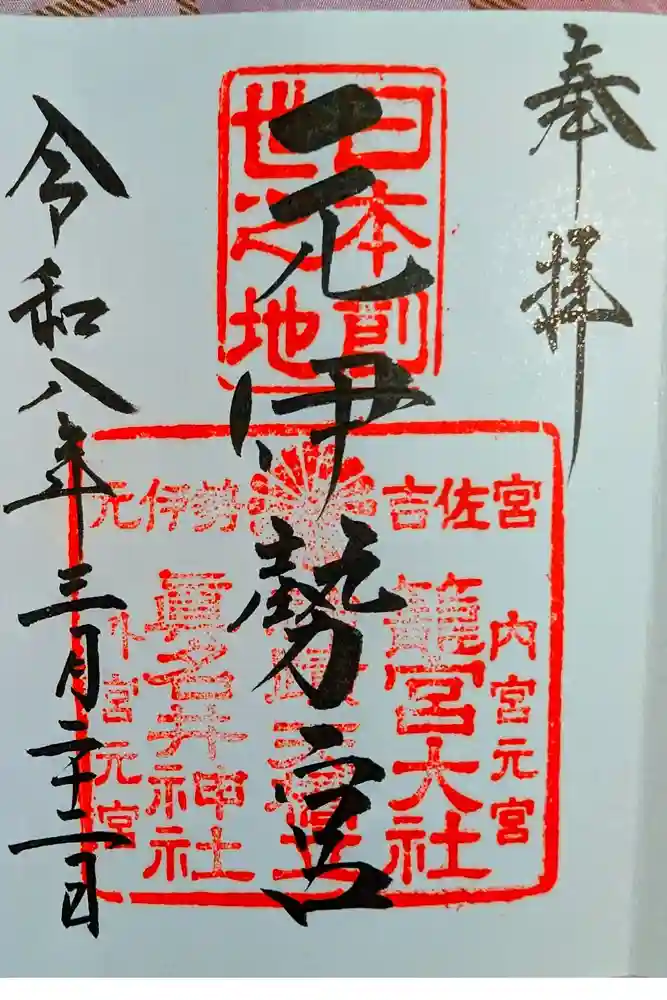 奉拝
日本創
世之地
一元伊勢宮
元伊勢 吉佐宮
内宮元宮
籠宮大社
眞名井神社
外宮元宮
令和八年三月二十二日